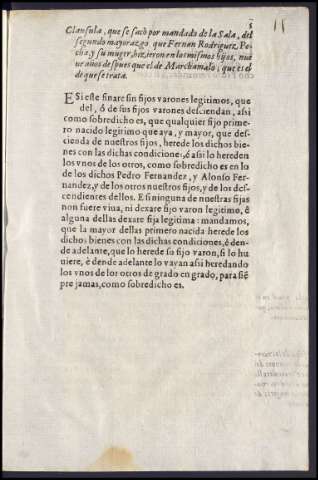 5
11
Clausula, que se sacò por mandado de la Sala, del
segundo mayorazgo que Fernan Rodriguez, Pe-
cha, y su muger, hizieron en los mismos hijos, nue
ue años despues que el de Marchamalo, que es el
de que se trata.
E Si este finare sin fijos varones legitimos, que
del, ò de sus fijos varones desciendan, assi
como sobredicho es, que qualquier fijo prime-
ro nacido legitimo que aya, y mayor, que des-
cienda de nuestros fijos, herede los dichos bie-
nes con las dichas condiciones, è assi lo hereden
los vnos de los otros, como sobredicho es en lo
de los dichos Pedro Fernandez, y Alonso Fer-
nandez, y de los otros nuestros fijos, y de los des-
cendientes dellos. E si ninguna de nuestras fijas
non fuere viua, ni dexare fijo varon legitimo, è
alguna dellas dexare fija legitima: mandamos,
que la mayor dellas primero nacida herede los
dichos bienes con las dichas condiciones, è den-
de adelante, que lo herede so fijo varon, si lo hu
uiere, è dende adelante lo vayan assi heredando
los vnos de los otros de grado en grado, para siē
pre jamas, como sobredicho es.